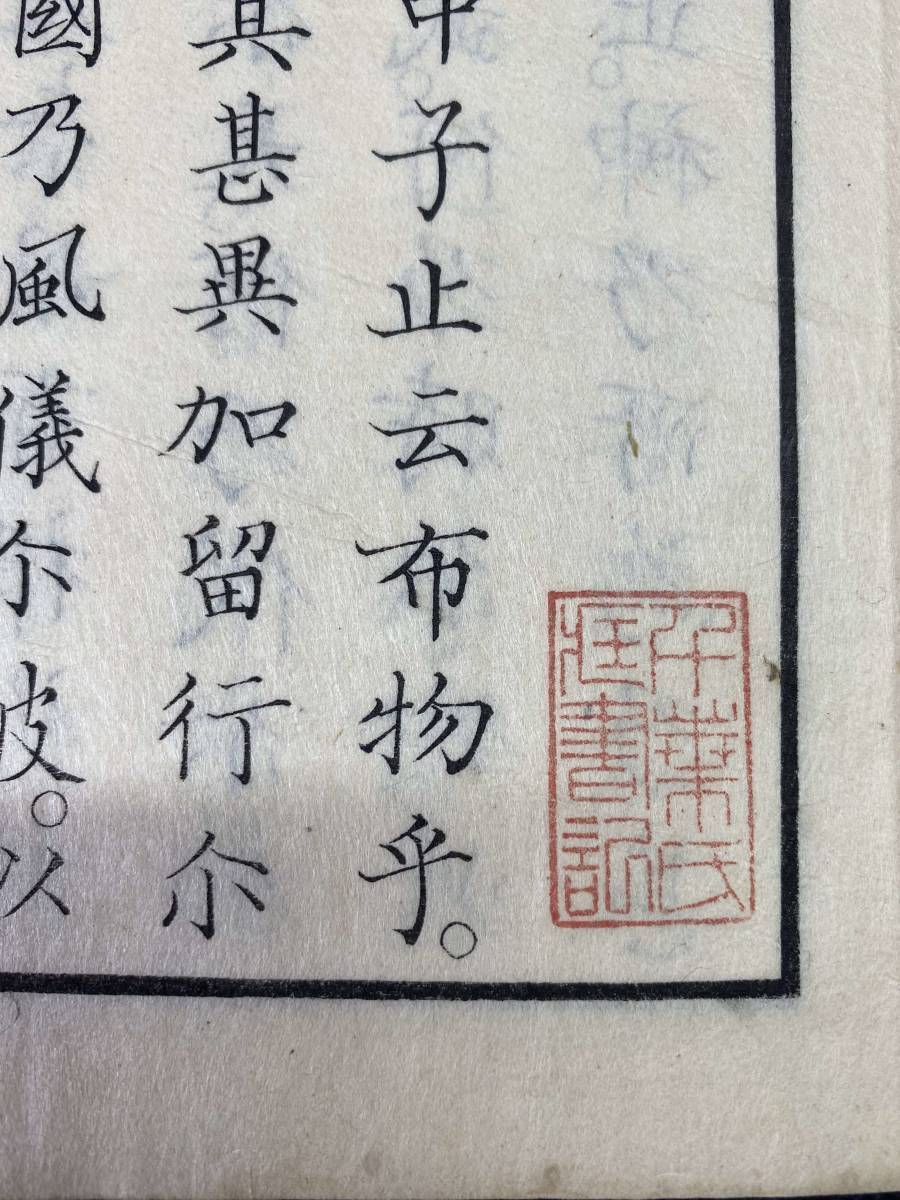 千葉氏
書記
子止云布物乎。
甚異加留行尓
國乃風儀尓皮。以